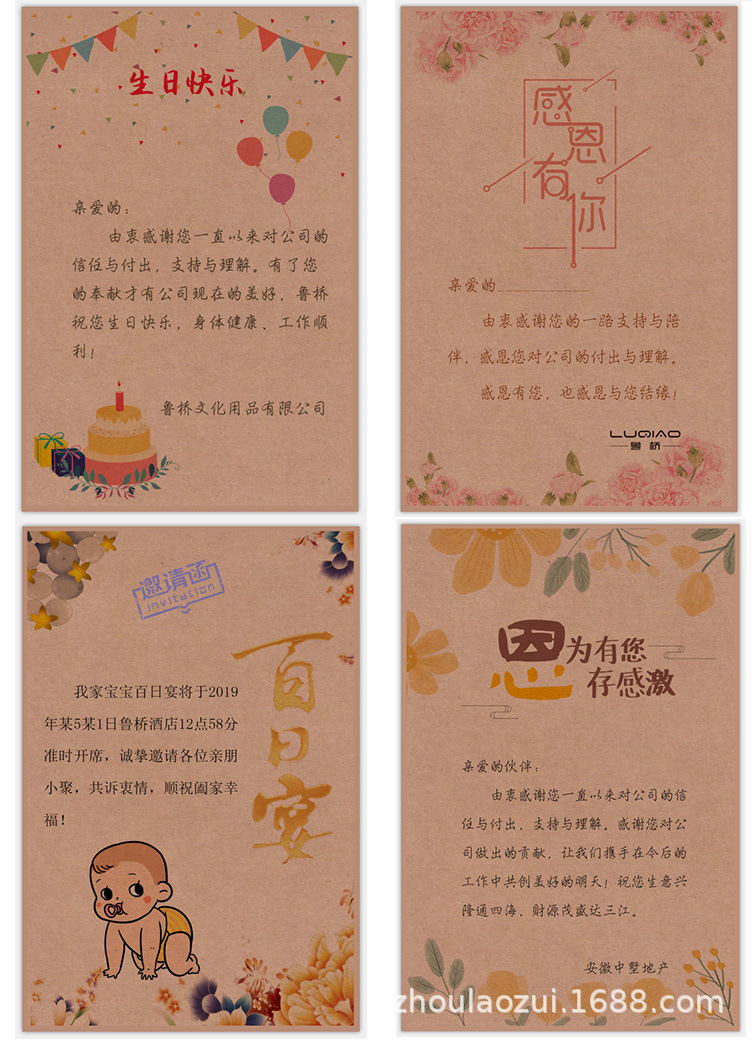 生日快乐
亲爱的：
由衷感谢您一直以来对公司的
信任与付出，支持与理解。有了您
的奉献才有公司现在的美好，鲁桥
祝您生日快乐，身体健康、工作顺
利！
鲁桥文化用品有限公司
感恩有你
亲爱的
由衷感谢您的一路支持与陪
伴，感恩您对公司的付出与理解。
感恩有您，也感恩与您结缘！
LUQIAO
鲁桥
邀请函
invitation
百日宴
我家宝宝百日宴将于2019
年某5某1日鲁桥酒店12点58分
准时开席，诚挚邀请各位亲朋
小聚，共诉衷情，顺祝阖家幸
福！
恩为有您
存感激
亲爱的伙伴：
由衷感谢您一直以来对公司的信
任与付出，支持与理解。感谢您对公
司做出的贡献，让我们携手在今后的
工作中共创美好的明天！祝您生意兴
隆通四海，财源茂盛达三江。
安徽中墅地产
zhoulaozui.1688.com